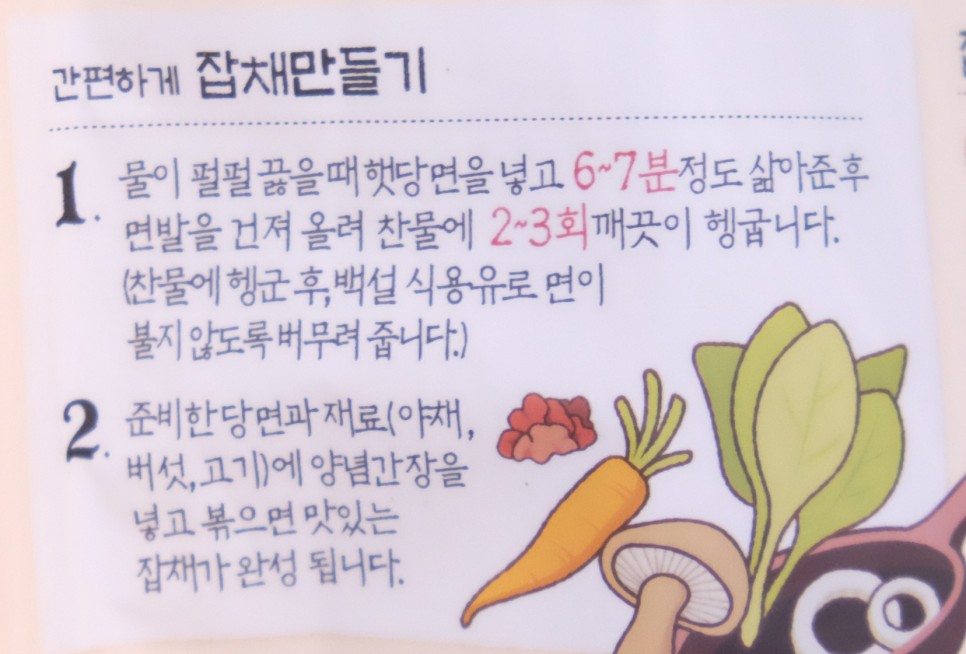 간편하게 잡채만들기
1. 물이 펄펄 끓을 때 햇당면을 넣고 6~7분정도 삶아준 후
면발을 건져 올려 찬물에 2~3회 깨끗이 헹굽니다.
(찬물에 헹군 후, 백설 식용유로 면이
불지 않도록 버무려 줍니다.)
2. 준비한 당면과 재료(야채,
버섯, 고기)에 양념간장을
넣고 볶으면 맛있는
잡채가 완성 됩니다.